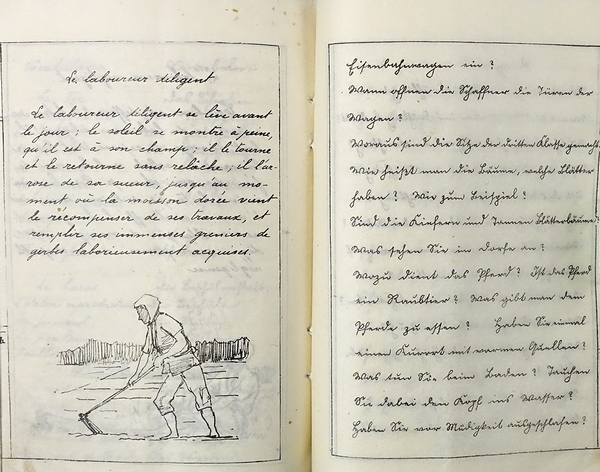 Le laboureur diligent
Le laboureur diligent se lève avant
le jour; le soleil se montre à peine,
qu'il est à son champs; il le tourne
et le retourne sans relâche; il l'ar-
rose de sa sueur, jusqu'au mo-
ment où la moisson dorée vient
le récompenser de ses travaux, et
remplir ses immenses greniers de
gerbes laborieusement acquises.
Eisenbahnwagen ein?
Wann öffnen die Schaffner die Türen der
Wagen?
Woraus sind die Sitze der dritten Klasse gemacht?
Wie heißt man die Bäume, welche Blätter
haben? Wie zum Beispiel?
Sind die Kiefern und Tannen Blätterbäume?
Was sehen Sie in Dorfe an?
Wozu dient das Pferd? Ist das Pferd
ein Raubtier? Was gibt man dem
Pferde zu essen? Haben Sie einmal
einen Kurort mit warmen Quellen?
Was tun Sie beim Baden? Tauchen
Sie dabei den Kopf ins Wasser?
Haben Sie vor Müdigkeit ausgeschlafen?